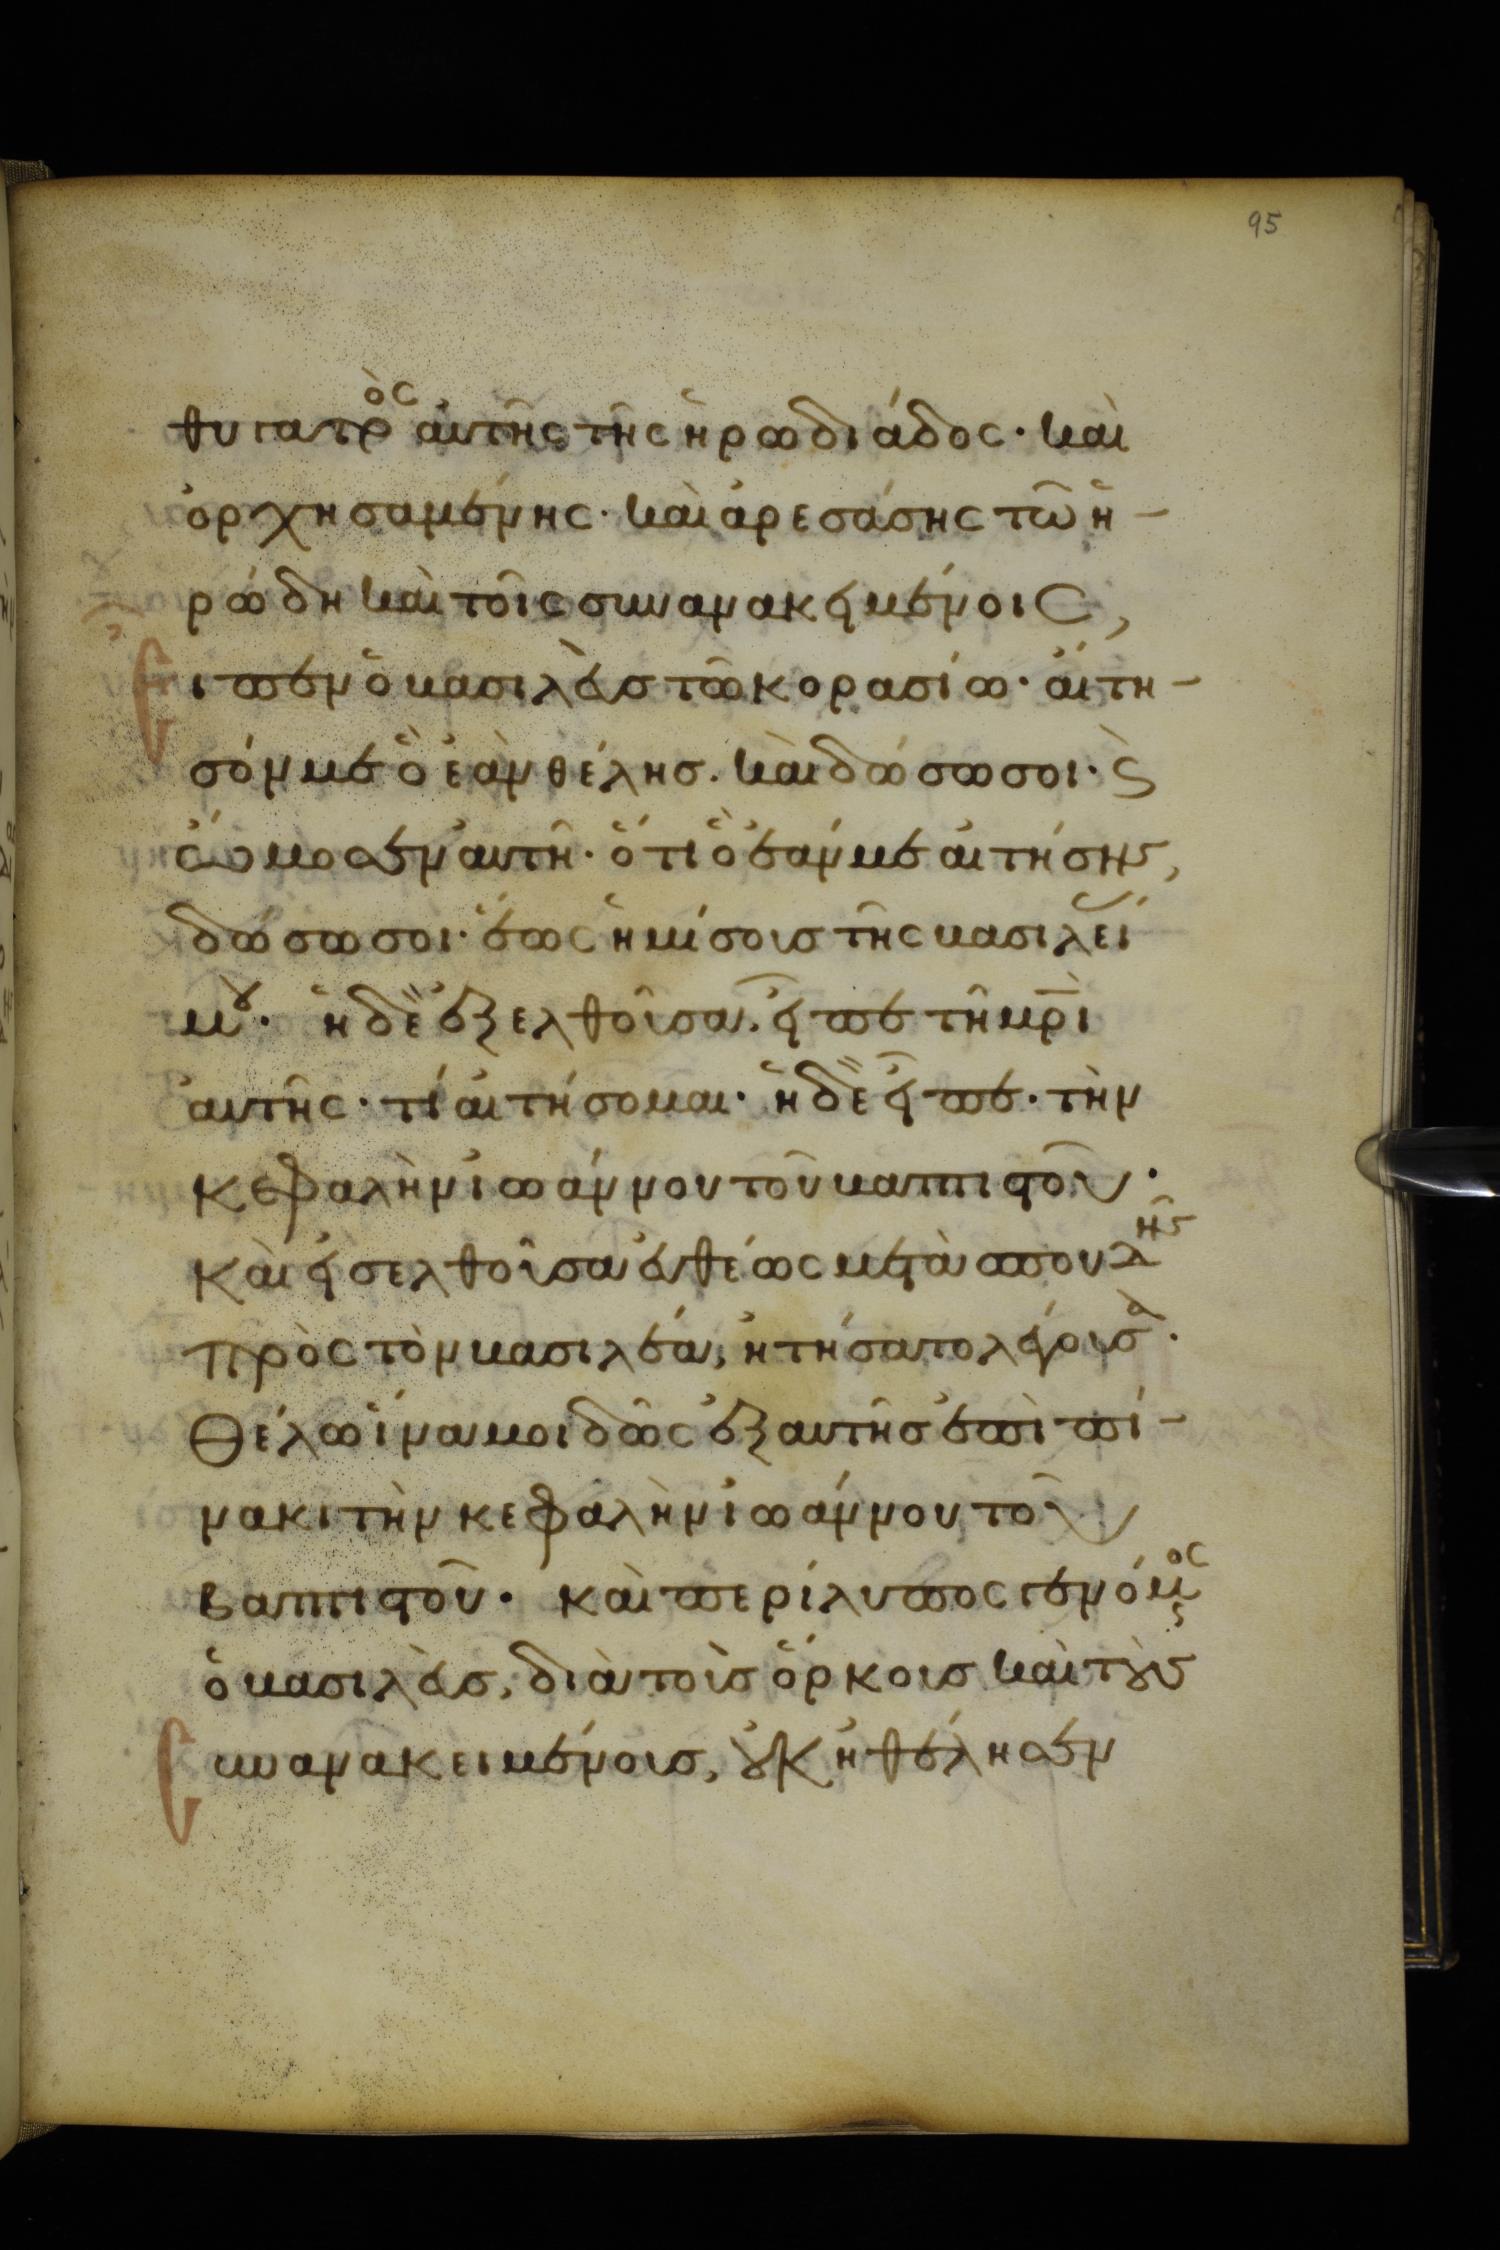 95
θυγατρὸς αὐτῆς τῆς ἡρωδιάδος· καὶ
ὀρχησαμένης· καὶ ἀρεσάσης τῶ ἡ-
ρώδη καὶ τοῖς συνανακειμένοις,
εἶπεν ὁ βασιλεὺς τῶ κορασίω· αἴτη-
σόν με ὃ ἐὰν θέλης. καὶ δώσω σοι· ϛ̀
ὤμοσεν αὐτῆ· ὅτι ὃ ἐάν με αἰτήσης,
δώσω σοι· ἕως ἡμίσους τῆς βασιλεί
μου· ἡ δὲ ἐξελθοῦσα. εἶπε τῆ μρ̅ὶ
αὐτῆς· τί αἰτήσομαι· ἡ δὲ εἶπε· τὴν
κεφαλὴν ἰωάννου τοῦ βαπτιστοῦ·
Καὶ εἰσελθοῦσα εὐθέως μετὰ σπουδῆς
πρὸς τὸν βασιλέα, ἠτήσατο λέγουσα·
Θέλω ἵνα μοι δῶς ἐξαυτῆς ἐπὶ πί-
νακι τὴν κεφαλὴν ἰωάννου τοῦ
βαπτιστοῦ· καὶ περίλυπος γενόμενος
ὁ βασιλεὺς, διὰ τοὺς ὅρκους καὶ τοὺς
συνανακειμένους, οὐκ ἠθέλησεν